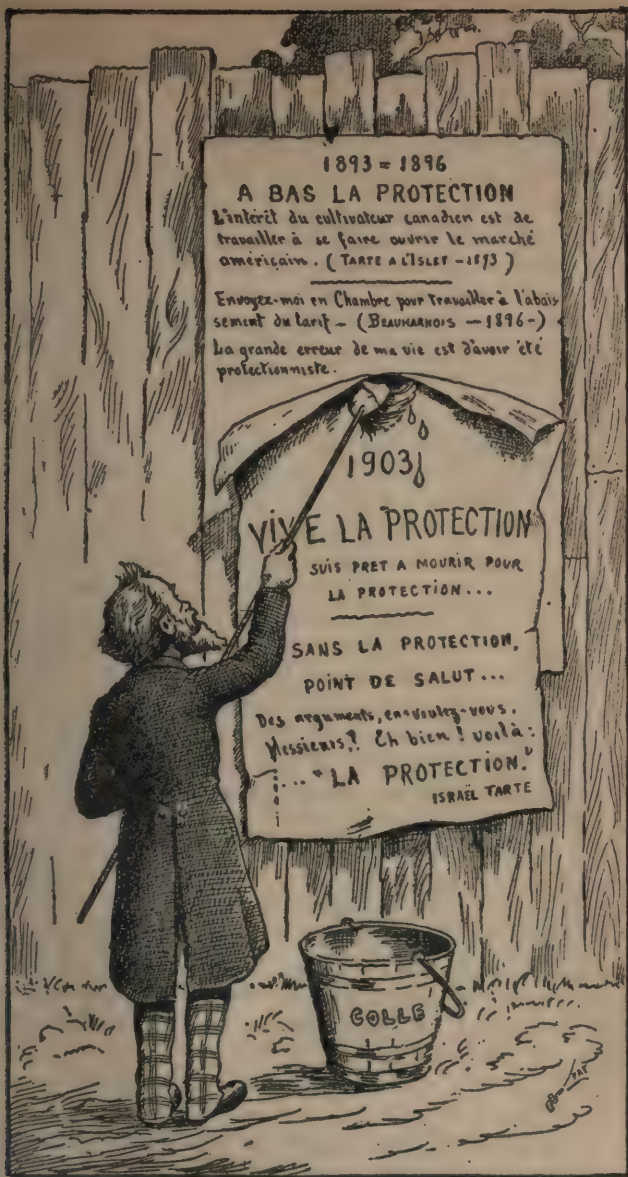 1893 = 1896
A BAS LA PROTECTION
L'intérêt du cultivateur canadien est de
travailler à se faire ouvrir le marché
américain. (TARTE A L'ISLET -1893)
Envoyez-moi en Chambre pour travailler à l'abais
sement du tarif - (BEAUHARNOIS - 1896-)
La grande erreur de ma vie est d'avoir été
protectionniste.
1903
VIVE LA PROTECTION
SUIS PRET A MOURIR POUR
LA PROTECTION...
SANS LA PROTECTION,
POINT DE SALUT...
Des arguments, en voulez-vous,
Messieurs? Eh bien! voilà:
..."LA PROTECTION."
ISRAËL TARTE
COLLE